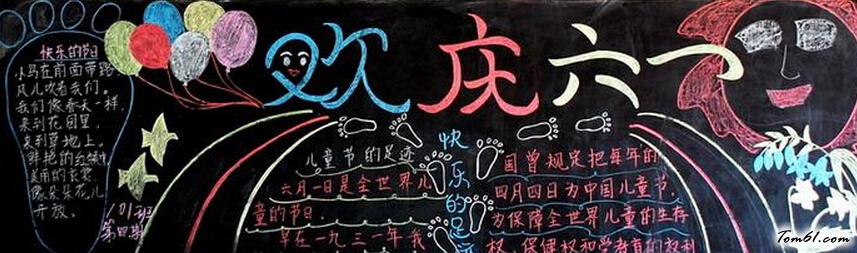 欢庆六一
快乐的节日
小鸟在前面带路
风儿吹着我们。
我们像春天一样,
来到花园里,
来到草地上。
鲜艳的红领巾
美丽的衣裳,
像朵朵花儿
开放。
101班
第四期
儿童节的足迹
六月一日是全世界儿
童的节日。
早在一九三一年我
快乐的足迹
国曾规定把每年的
四月四日为中国儿童节,
为保障全世界儿童的生存
权、保健权和学教育的权利
Tom61.com